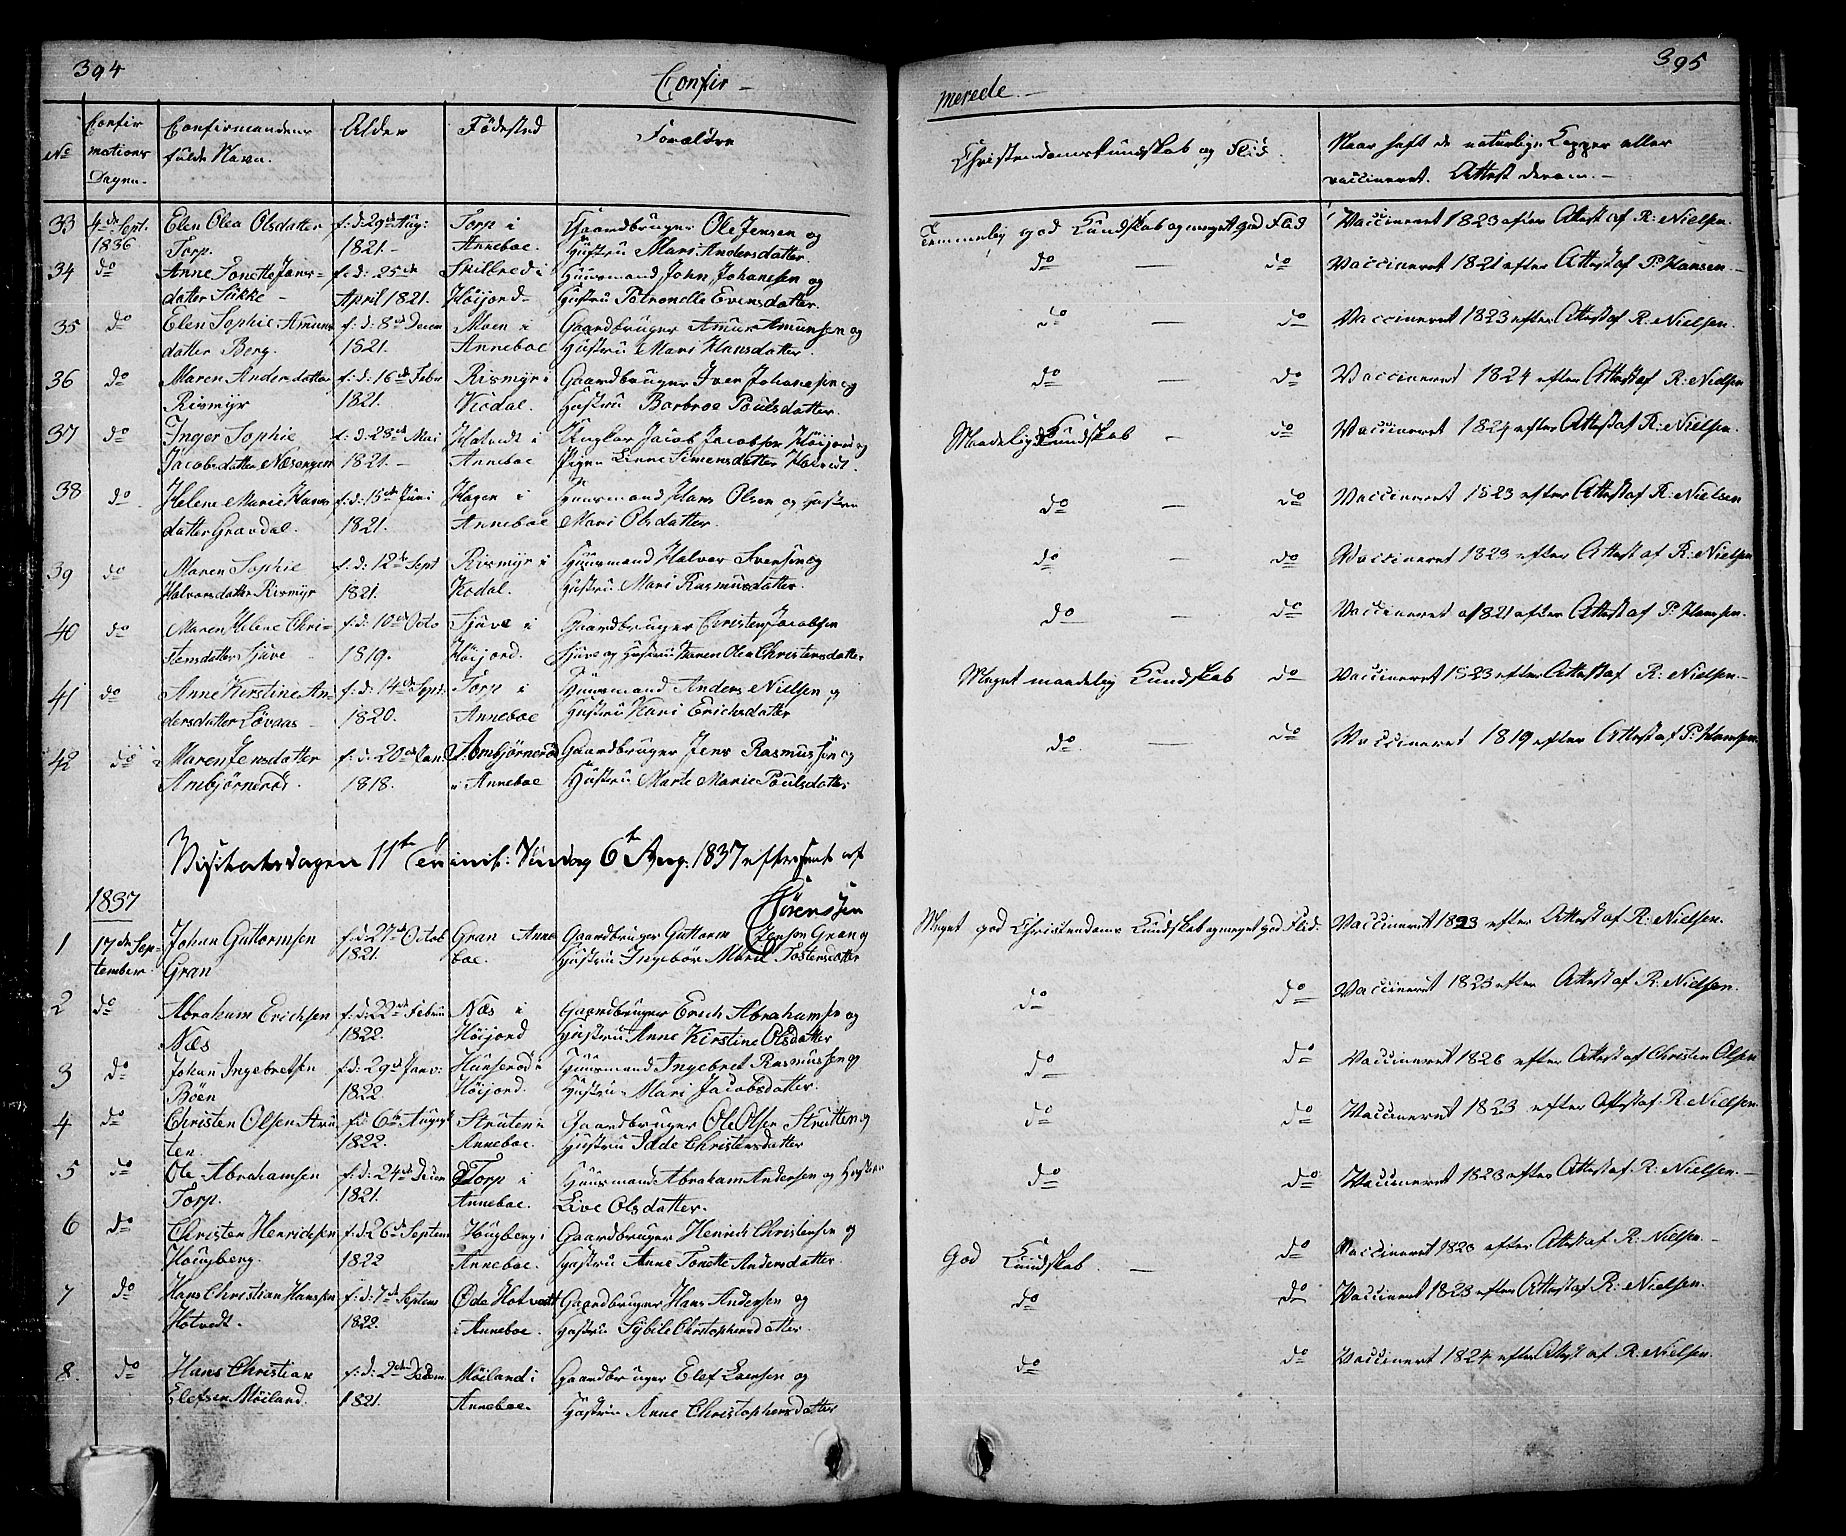 394
Confir-
No
Confir
mations
Dagen.
Confirmandens
fulde Navn.
Alder
Födested
Forældre
33
4de Sept.
1836
Elen Olea Olsdatter
Torp.
f: d: 29de Aug:
1821.-
Torp i
Anneboe.
Gaardbruger Ole Jensen og
Hustru Mari Andersdatter.
34
do
Anne Tonette Jans-
datter Stikke -
f: d: 25de
April 1821.
Skilbred i
Höijord-
Huusmand John Johansen og
Hustru Petronelle Evensdatter.
35
do
Elen Sophie Amuns
datter Berg.
f: d: 8de Decem
1821.
Moen i
Anneboe
Gaardbruger Amun Amunsen og
Hustru Mari Hansdatter.
36
do
Maren Andersdatter
Rismyr
f: d: 16de Febr
1821.
Rismyr i
Kodal.
Gaardbruger Iver Johanesen og
Hustru Barbroe Poulsdatter.
37
do
Inger Sophie
Jacobsdatter Næsengen
f: d: 28de Mai
1821.-
Hotvedt i
Anneboe
Ungkar Jacob Jacobsen Höijord og
Pigen Linne Simensdatter Hotvedt.
38
do
Helene Marie Hans
datter Gravdal.
f: d: 15de Juni
1821.
Hagen i
Anneboe
Huusmand Hans Olsen og Hustru
Mari Olsdatter.
39
do
Maren Sophie
Halvorsdatter Rismyr
f: d: 12te Sept
1821.
Rismyr i
Kodal.
Huusmand Halvor Svensen og
Hustru Mari Rasmusdatter.
40
do
Maren Helene Chri-
stensdatter Sjüve -
f: d: 10de Octo
1819.
Sjüve i
Höijord.
Gaardbruger Christen Jacobsen
Sjüve og Hustru Karen Olea Christensdatter
41
do
Anne Kirstine An-
dersdatter Lövaas -
f: d: 14de Sept.
1820.
Torp i
Anneboe
Huusmand Anders Nielsen og
Hustru Kari Erichsdatter
42
do
Maren Jensdatter
Arnbjörneröd
f: d: 20de Jan:
1818.
Arnbjörneröd
i Anneboe
Gaardbruger Jens Rasmussen og
Hustru Marte Marie Poulsdatter.
11te Söndag 6te Aug. 1837 efterseet af
Sörenssen
1837
1
17de Sep-
tember.
Johan Guttormsen
Gran
f: d 27de Octob
1821.
Gran Anne
boe.
Gaardbruger Guttorm Jensen Gran og
Hustru Ingebör Marie Tostensdatter
2
do
Abraham Erichsen
Næs
f: d: 22de Febru
1822.
Næs i
Höijord
Gaardbruger Erich Abrahamsen og
Hustru Anne Kirstine Olsdatter
3
do
Johan Ingebretsen
Böen
f: d: 29de Janv:
1822
Hünseröd i
Höijord.
Huusmand Ingebret Rasmussen og
Hustru Mari Jacobsdatter.
4
do
Christen Olsen Strü
ten.
fd 6te August
1822.
Struten i
Anneboe.
Gaardbruger Ole Olsen Strutten og
Hustru Idde Christensdatter
5
do
Ole Abrahamsen
Torp.
f: d: 24de Decem
1821.
Torp i
Anneboe.
Huusmand Abraham Andersen og Hustru
Live Olsdatter.
6
do
Christen Henrichsen
Hougberg.
f: d: 26de Septem
1822
Hougberg i
Anneboe.
Gaardbruger Henrich Christensen og
Hustru Anne Tonette Andersdatter.
7
do
Hans Christian Hansen
Hotvedt.
f: d: 7de Septem
1822.
Øde Hotvedt
i Anneboe.
Gaardbruger Hans Andersen og
Hustru Sybile Christophersdatter
8
do
Hans Christian
Elefsen Möiland.
f: d: 2den Decem.
1821.
Möiland i
Anneboe.
Gaardbruger Elef Larsen og
Hustru Anne Christophersdatter
395
merede.-
Christendomskundskab og Flid.
Naar haft de naturlige Kopper eller
vaccineret. Attest derom.-
Temmelig god Kundskab og meget god Flid
Vaccineret 1823 efter Attest af R: Nielsen.
do - do
Vaccineret 1821 efter Attest af P: Hansen.-
do - do
Vaccineret 1823 efter Attest af R: Nielsen.
do - do
Vaccineret 1824 efter Attest af R: Nielsen
Maadelig Kundskab - do
Vaccineret 1824 efter Attest af R: Nielsen.
do - do
Vaccineret 1823 efter Attest af R: Nielsen
do - do
Vaccineret 1823 efter Attest af R: Nielsen
do - do
Vaccineret 1821 efter Attest af P: Hansen.
Meget maadelig Kundskab do
Vaccineret 1823 efter Attest af R: Nielsen.-
do - do
Vaccineret 1819 efter Attest af P: Hansen.
Meget god Christendoms Kundskab og meget god Flid.
Vaccineret 1823 efter Attest af R: Nielsen.
do do
Vaccineret 1823 efter Attest af R: Nielsen.
do do
Vaccineret 1826 efter Attest af Christen Olsen
do do
Vaccineret 1823 efter Attest af R Nielsen.
do do
Vaccineret 1823 efter Attest af R: Nielsen.-
God Kundskab. - do
Vaccineret 1823 efter Attest af R: Nielsen.-
do do
Vaccineret 1823 efter Attest af R: Nielsen.
do do
Vaccineret 1824 efter Attest af R: Nielsen.